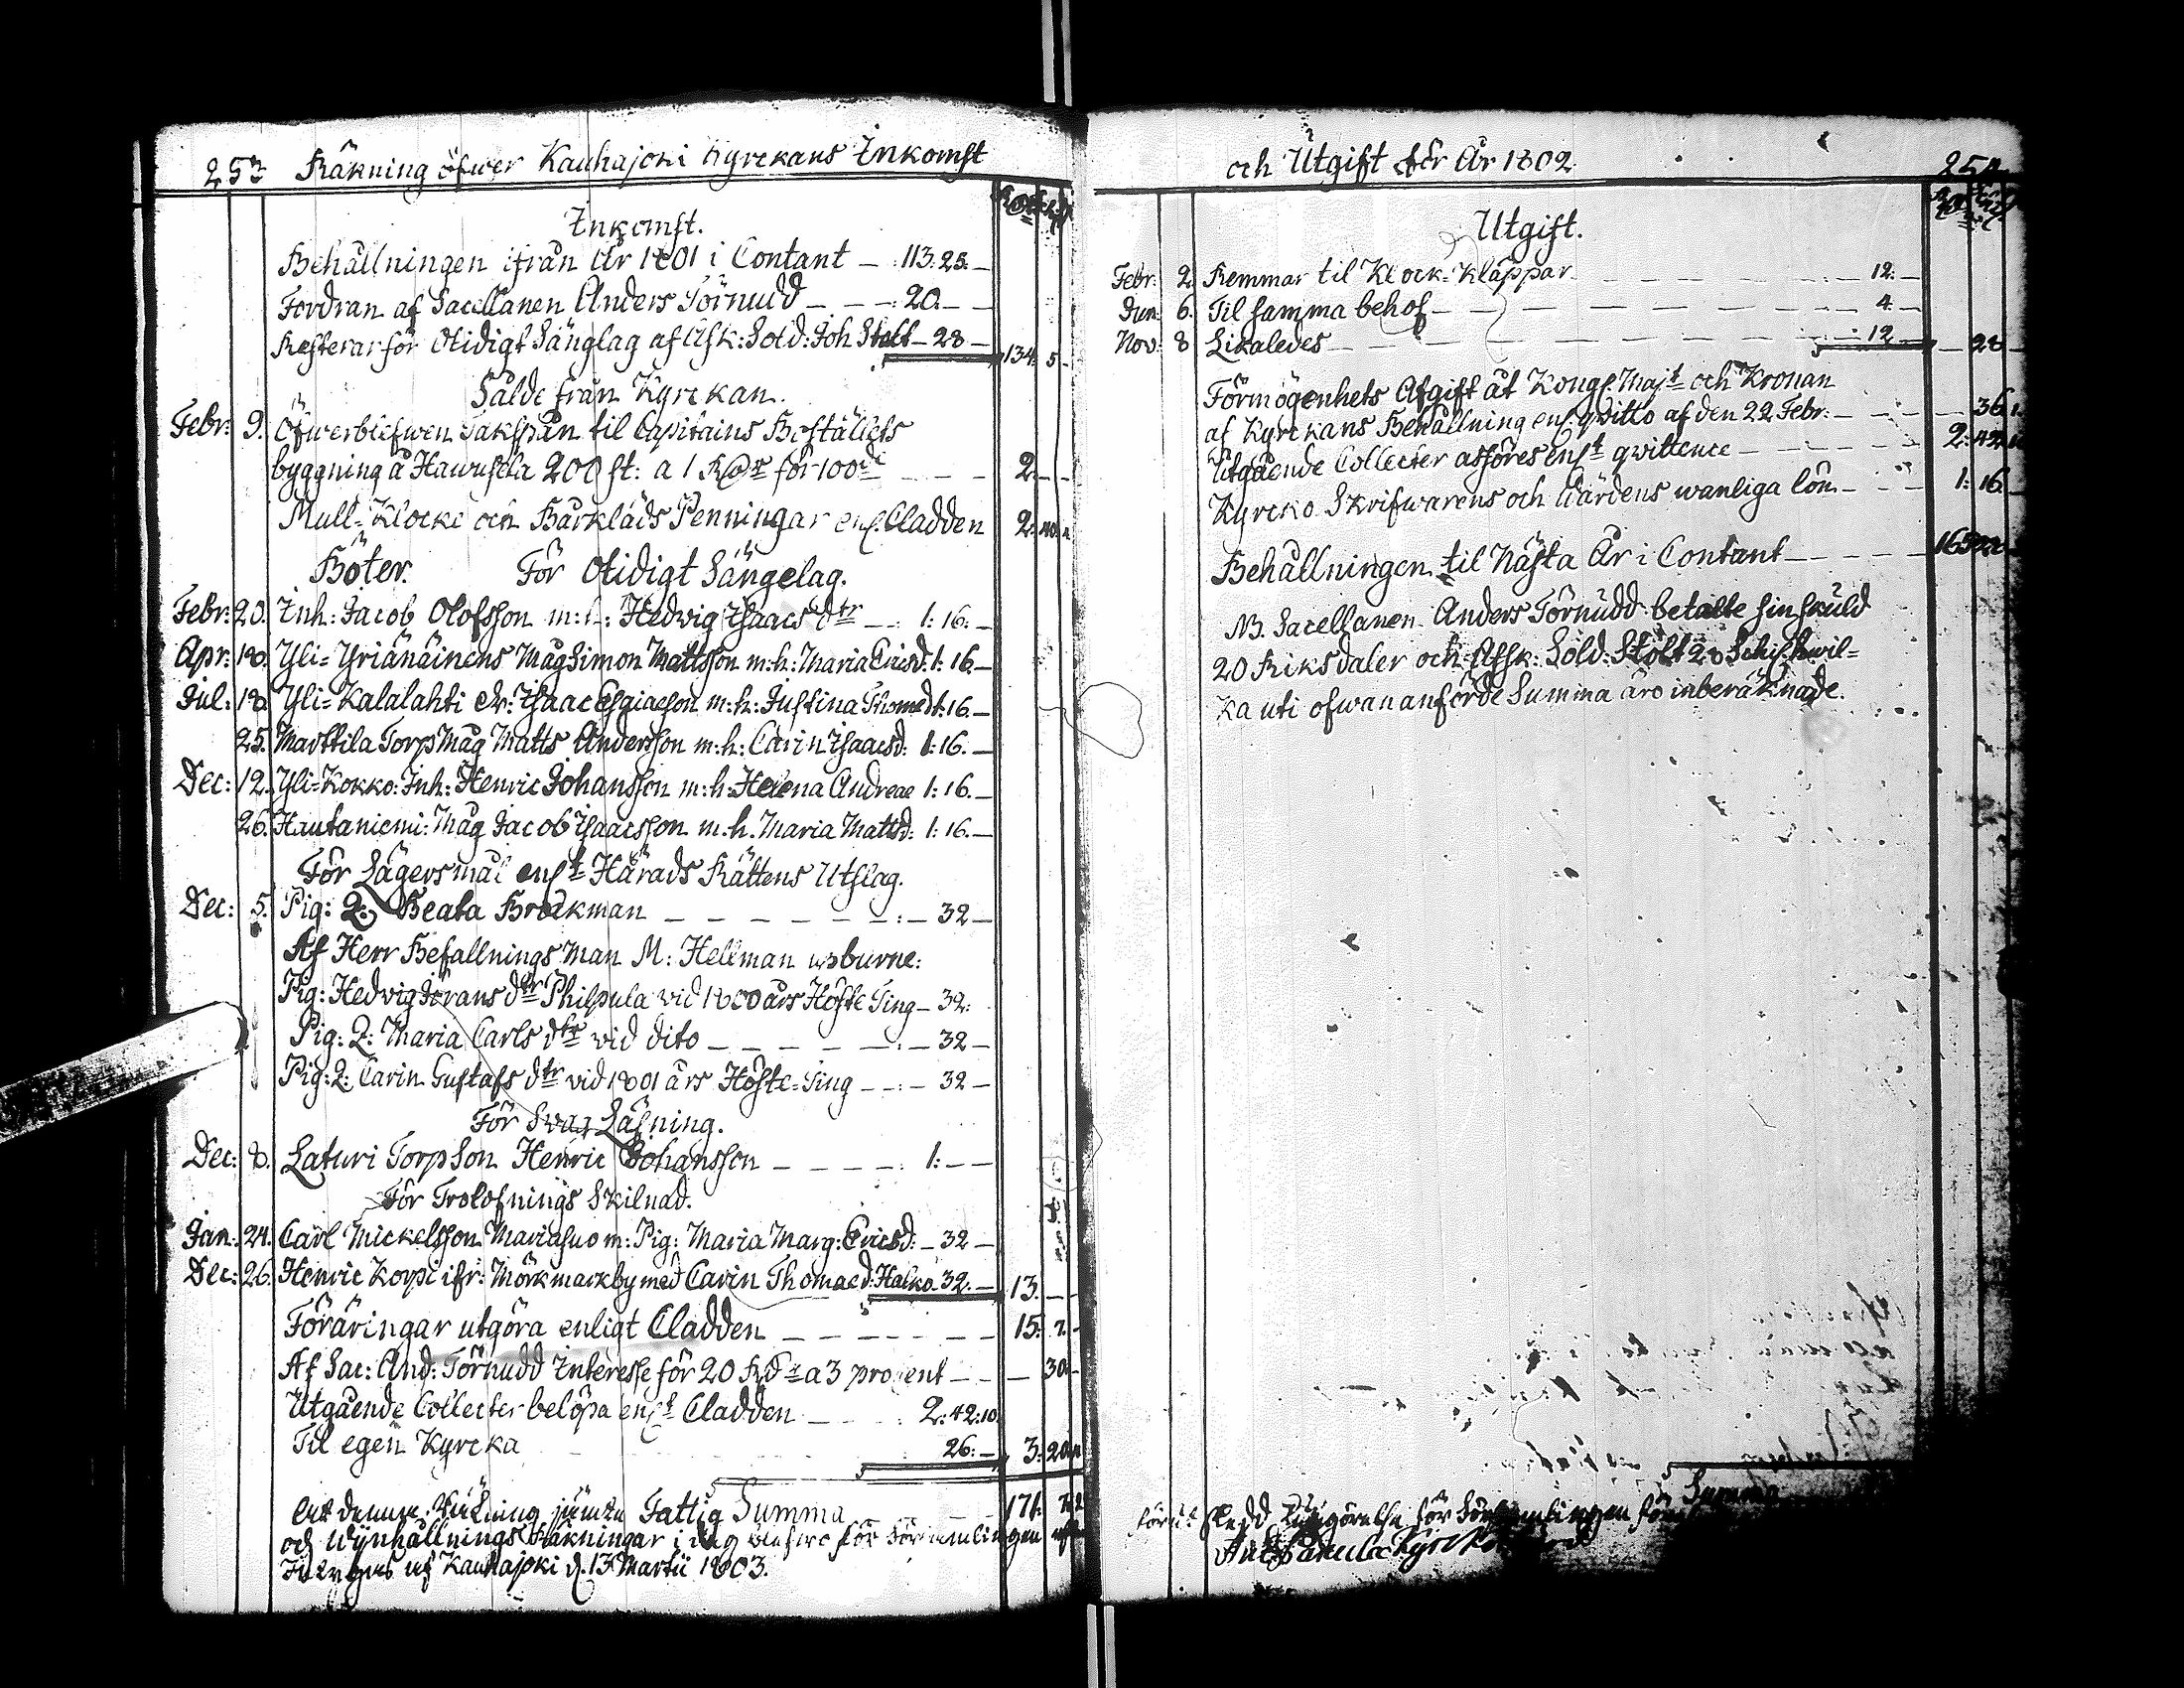 253 Räkning öfwer Kauhajoki Kyrckans Inkomst
Inkomst.
Behållningen ifrån År 1801 i Contant — 113: 25. —
Fordran af Sacellanen Anders Törnudd — — — 20. —
Resterar för Otidigt Sänglag af Afsk: Sold: Joh Stolt — 28 — 134. 5 —
Sålde från Kyrckan.
Febr: 9. Öfwerblefwen Takspån til Capitains Boställets
byggning å Hawusela 200 st: a 1 Rdr för 100de — — — 2. — —
Mull-Klocke och Bårkläds Penningar enl. Cladden 2. 40.
Böter. För Otidigt Sängelag.
Febr: 20. Inh: Jacob Olofsson m: h: Hedwig Isaacs dtr — 1: 16. —
Apr: 18. Yli-Yriänäinens Måg Simon Mattsson m: h: Maria Ericsd: 1: 16. —
Jul: 18. Yli-Kalalahti dr: Isaac Esaiasson m: h: Justina Thomed: 1: 16. —
25. Marttila Torp Måg Matts Andersson m: h: Carin Isaacsd: 1: 16. —
Dec: 12. Yli-Kokko: Inh: Henric Johansson m: h: Helena Andreae 1: 16. —
26. Hautaniemi: Måg Jacob Isaacsson m. h. Maria Mattsd: 1: 16. —
För Lägersmål enlt Härads Rättens Utslag.
Dec: 5. Pig: Q: Beata Brockman — — — — — — : — 32 —
Af Herr Befallnings Man M: Hellman upburne:
Pig: Hedwig Jörans dtr Philpula vid 1800 års Höste Ting — 32:
Pig: Q: Maria Carls dtr vid dito — — — — — : — 32 —
Pig: Q: Carin Gustafs dtr vid 1801 års Höste-Ting — — : — 32 —
För Swag Läsning.
Dec: 8. Laturi Torp Son Henric Johansson — — — — 1: — —
För Trolofnings Skilnad.
Jan: 24. Carl Mickelsson Mariasuo m: Pig: Maria Marg: Ericsd: — 32 —
Dec: 26. Henric Korpi ifr: Mörkmarkby med Carin Thomaed: Halko 32. — 13. — —
Föräringar utgöra enligt Cladden — — — — — — — 15: 7. -
Af Sac: And: Törnudd Interesse för 20 Rdr a 3 procent — — — 30 -
Utgående Collecter belöpa enlt Cladden — 2: 42: 10.
Til egen Kyrcka 26: — 3: 20
Summa 171.
Att denne Räkning jämte Fattig
och Wijnhållnings Räkningar i dag för Församlingen
af Kauhajoki d. 13 Martii 1803.
och Utgift för År 1802 254
Utgift.
Febr: 2. Remmar til Klock-Kläppar — — — — — — 12: —
Jun: 6. Til samma behof — — — — — — — — 4. —
Nov: 8 Likaledes — — — — — — — — — — 12 — — 28 —
Förmögenhets Afgift åt Kongl. Majt och Kronan
af Kyrckans Behållning enl. qwitto af den 22 Febr: — — — 36
Utgående Collecter afföres enlt qwittence — — — — 2: 42
Kyrcko Skrifwarens och Wärdens wanliga lön — — — 1: 16
Behållningen til Nästa År i Contant — — — — — 165
NB. Sacellanen Anders Törnudd betalte sin skuld
20 Riksdaler och Afsk: Sold: Stolt 28 Sch, hwil-
ka uti ofwananförde Summa äro inberäknade.
Summa
förut skedd kungörelse för Församlingen